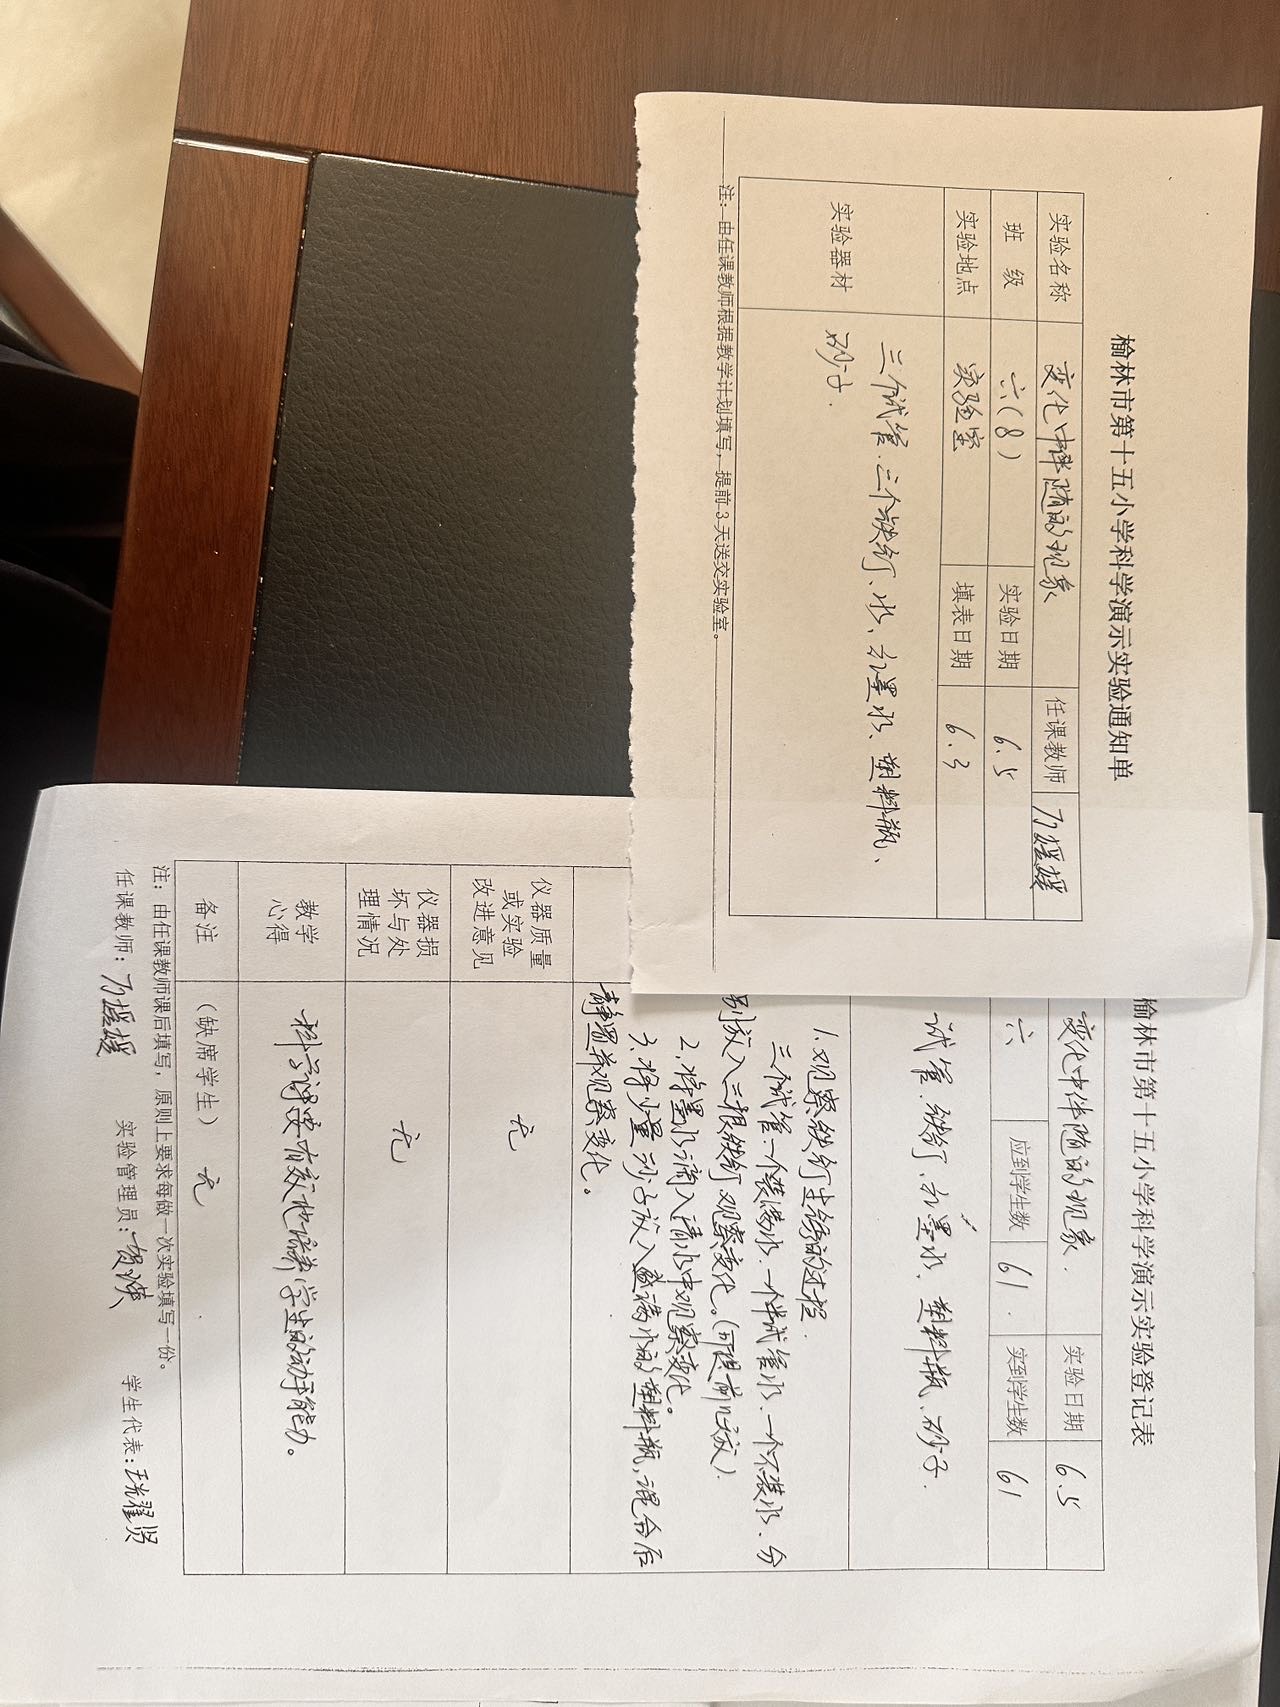 榆林市第十五小学科学演示实验通知单
实验名称 变化中伴随的现象 任课教师 万媛媛
班 级 六(8) 实验日期 6.5
实验地点 实验室 填表日期 6.3
实验器材 三个试管、三个铁钉、水、红墨水、塑料瓶、
砂子.
注：由任课教师根据教学计划填写，提前3天送交实验室。
榆林市第十五小学科学演示实验登记表
变化中伴随的现象. 实验日期 6.5
六 应到学生数 61. 实到学生数 61
试管、铁钉、红墨水、塑料瓶、砂子.
1.观察铁钉生锈的过程.
三个试管一个装满水.一个半试管水.一个不装水.分
别放入三根铁钉观察变化。(可提前几放)
2.将墨水滴入清水中观察变化。
3.将少量沙子放入盛满水的塑料瓶,混合后
静置并观察变化。
仪器质量
或实验
改进意见 无
仪器损
坏与处
理情况 无
教学
心得 科学课要有效地培养学生的动手能力。
备注 （缺席学生） 无
注：由任课教师课后填写，原则上要求每做一次实验填写一份。
任课教师：万媛媛 实验管理员： 学生代表：